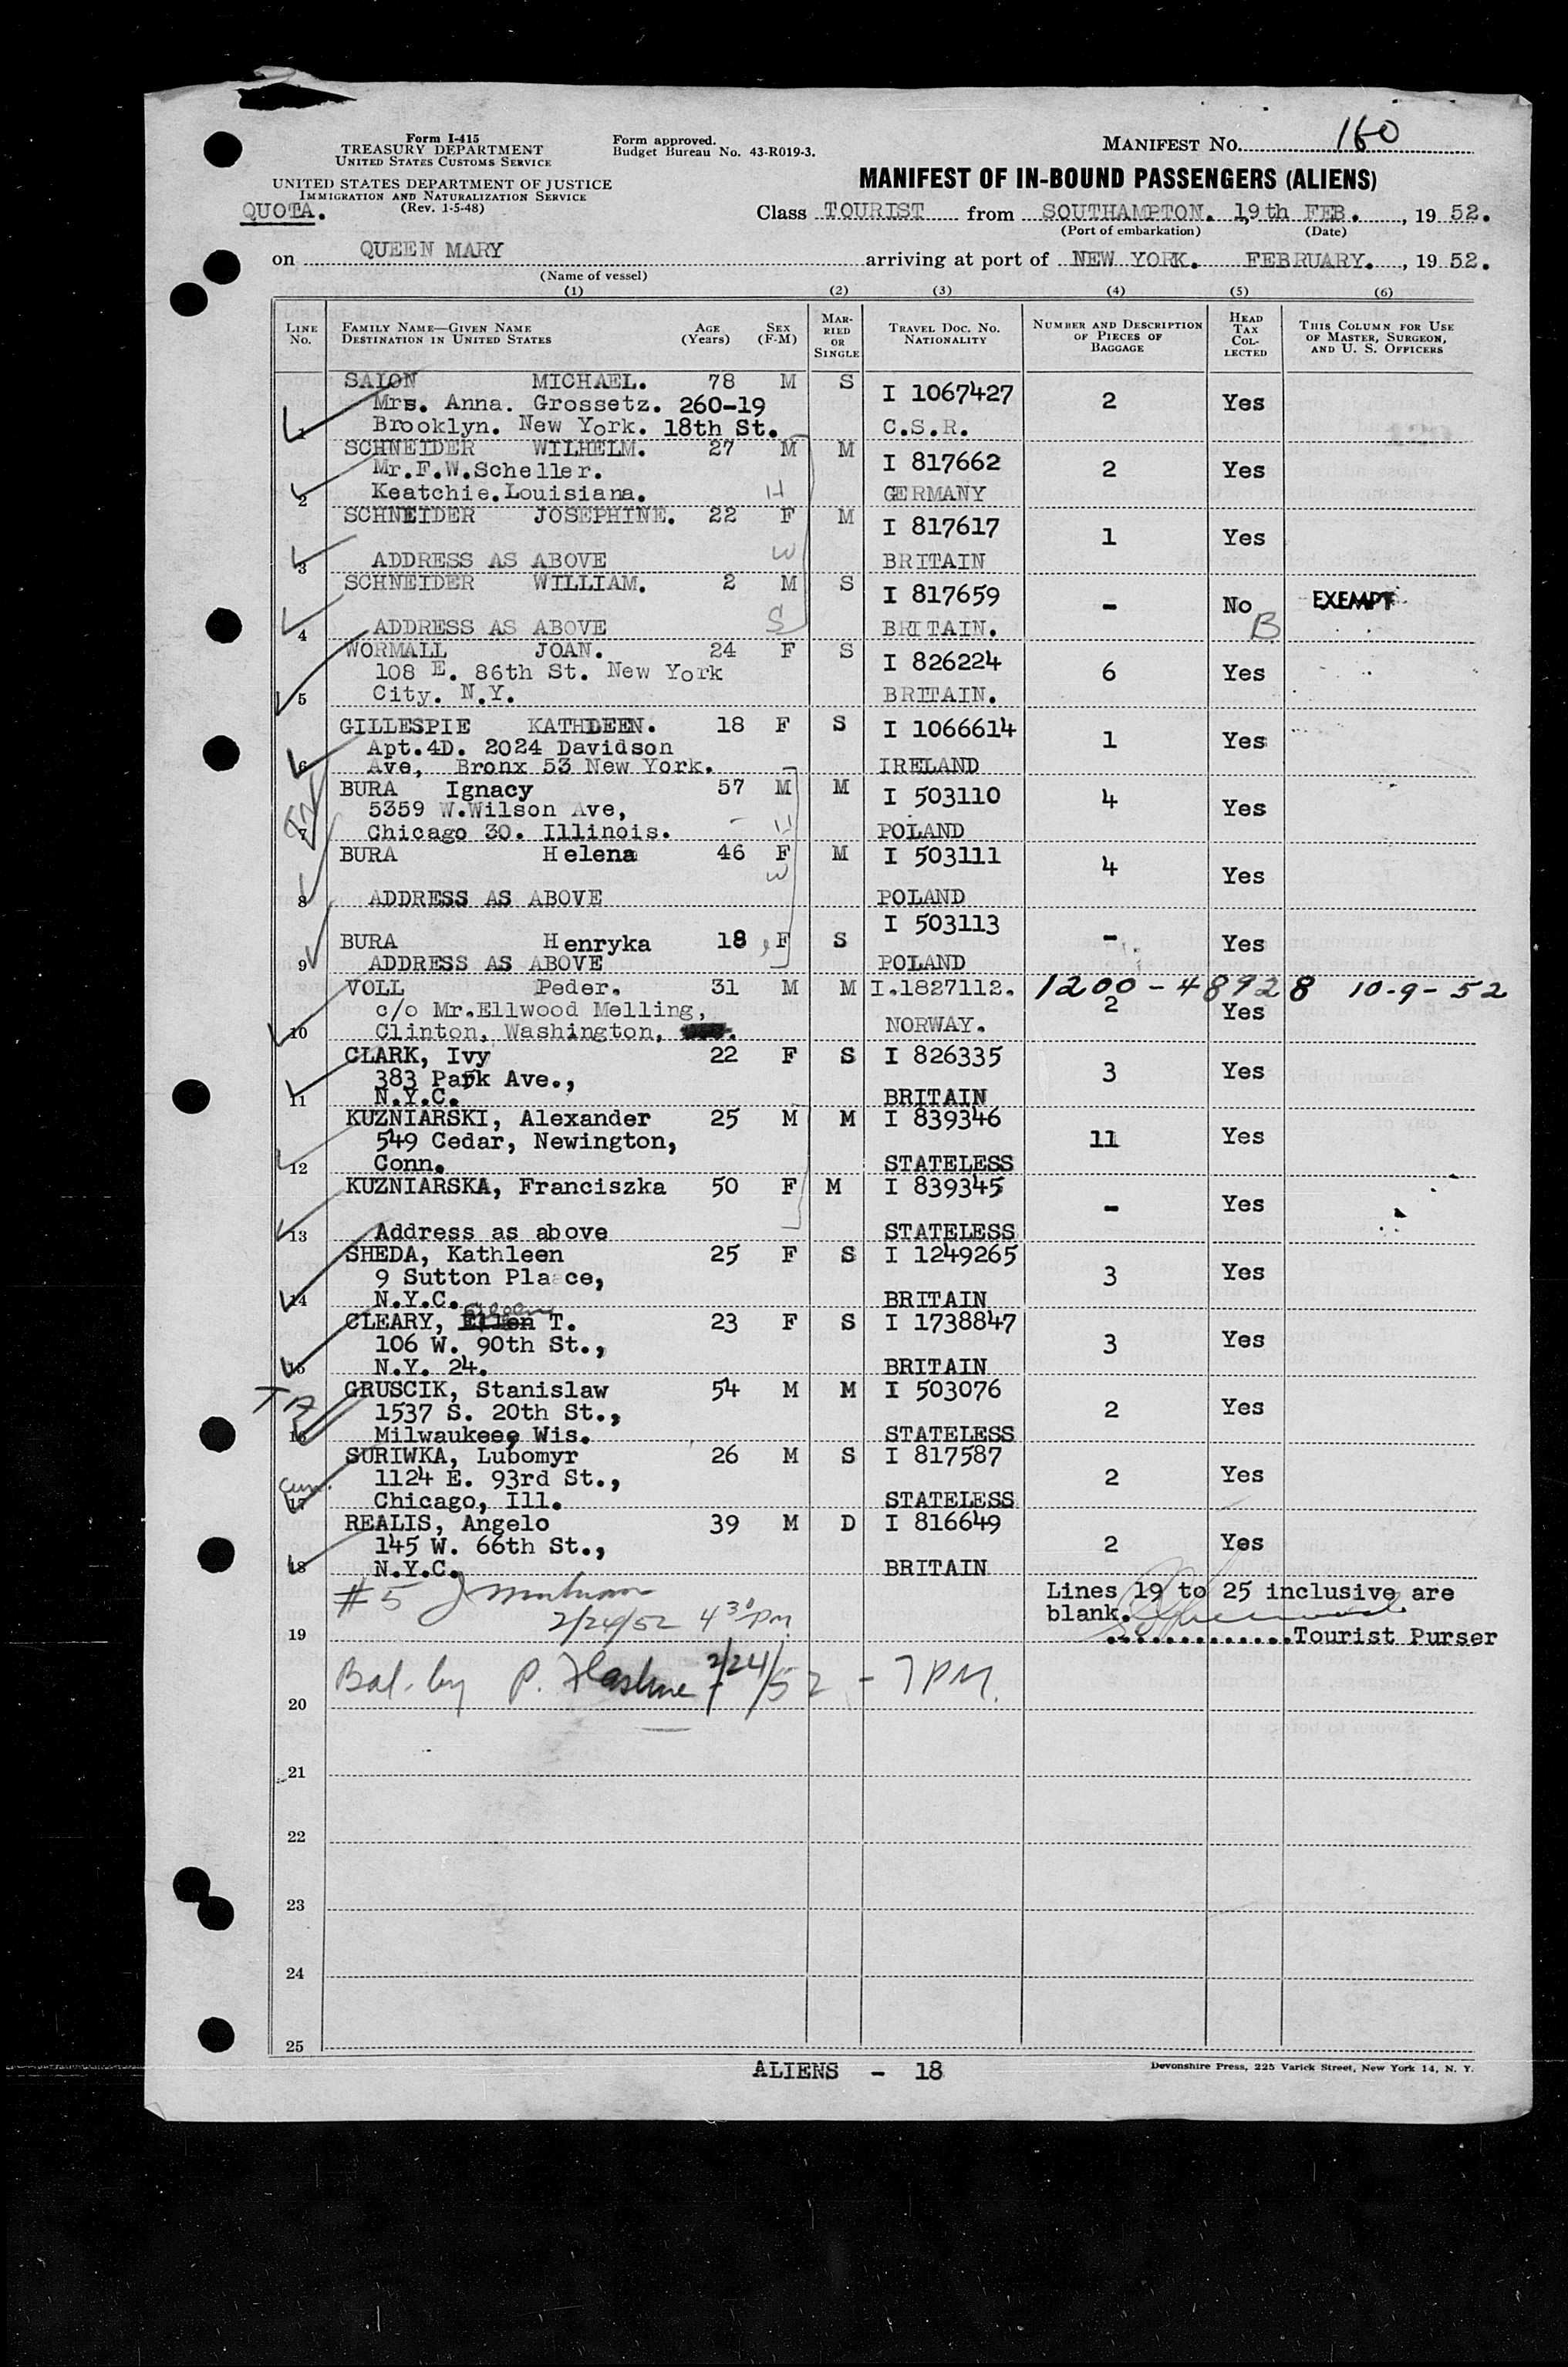 Form I-415
TREASURY DEPARTMENT
UNITED STATES CUSTOMS SERVICE
UNITED STATES DEPARTMENT OF JUSTICE
IMMIGRATION AND NATURALIZATION SERVICE
(Rev. 1-5-48)
QUOTA.
Form approved.
Budget Bureau No. 43-R019-3.
MANIFEST NO. 160
MANIFEST OF IN-BOUND PASSENGERS (ALIENS)
Class TOURIST from SOUTHAMPTON. 19th FEB. , 19 52.
(Port of embarkation) (Date)
on QUEEN MARY arriving at port of NEW YORK. FEBRUARY. , 19 52.
(Name of vessel)
(1) (2) (3) (4) (5) (6)
LINE NO.
FAMILY NAME—GIVEN NAME
DESTINATION IN UNITED STATES
AGE (Years)
SEX (F-M)
MARRIED OR SINGLE
TRAVEL DOC. NO.
NATIONALITY
NUMBER AND DESCRIPTION OF PIECES OF BAGGAGE
HEAD TAX COLLECTED
THIS COLUMN FOR USE OF MASTER, SURGEON, AND U. S. OFFICERS
SALON MICHAEL. 78 M S I 1067427 2 Yes
Mrs. Anna. Grossetz. 260-19
1 Brooklyn. New York. 18th St. C.S.R.
SCHNEIDER WILHELM. 27 M M I 817662 2 Yes
Mr.F.W.Scheller.
2 Keatchie.Louisiana. H GERMANY
SCHNEIDER JOSEPHINE. 22 F M I 817617 1 Yes
3 ADDRESS AS ABOVE W BRITAIN
SCHNEIDER WILLIAM. 2 M S I 817659 - No EXEMPT
4 ADDRESS AS ABOVE S BRITAIN. B
WORMALL JOAN. 24 F S I 826224 6 Yes
108 E. 86th St. New York
5 City. N.Y. BRITAIN.
GILLESPIE KATHLEEN. 18 F S I 1066614 1 Yes
Apt.4D. 2024 Davidson
6 Ave, Bronx 53 New York. IRELAND
BURA Ignacy 57 M M I 503110 4 Yes
5359 W.Wilson Ave,
7 Chicago 30. Illinois. H POLAND
BURA Helena 46 F M I 503111 4 Yes
W
8 ADDRESS AS ABOVE POLAND
BURA Henryka 18 F S I 503113 - Yes
9 ADDRESS AS ABOVE POLAND
VOLL Peder. 31 M M I.1827112. 1200-48928 10-9-52
c/o Mr.Ellwood Melling, 2 Yes
10 Clinton, Washington, NORWAY.
CLARK, Ivy 22 F S I 826335 3 Yes
383 Park Ave.,
11 N.Y.C. BRITAIN
KUZNIARSKI, Alexander 25 M M I 839346 11 Yes
549 Cedar, Newington,
12 Conn. STATELESS
KUZNIARSKA, Franciszka 50 F M I 839345 - Yes
13 Address as above STATELESS
SHEDA, Kathleen 25 F S I 1249265 3 Yes
9 Sutton Pla ce,
14 N.Y.C. BRITAIN
CLEARY, Ellen T. 23 F S I 1738847 3 Yes
106 W. 90th St.,
15 N.Y. 24. BRITAIN
GRUSCIK, Stanislaw 54 M M I 503076 2 Yes
1537 S. 20th St.,
16 Milwaukeee, Wis. STATELESS
SURIWKA, Lubomyr 26 M S I 817587 2 Yes
1124 E. 93rd St.,
17 Chicago, Ill. STATELESS
REALIS, Angelo 39 M D I 816649 2 Yes
145 W. 66th St.,
18 N.Y.C. BRITAIN
# 5
2/24/52 4 30 PM
Lines 19 to 25 inclusive are
blank.
19 .............Tourist Purser
Bal. by P. 2/24/52 - 7 PM.
20
21
22
23
24
25
ALIENS - 18
Devonshire Press, 225 Varick Street, New York 14, N. Y.